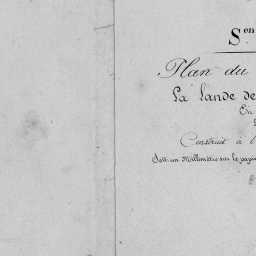 S.en
Plan du
La Lande de
En
Construit à l
Soit un Millimètre sur le papi